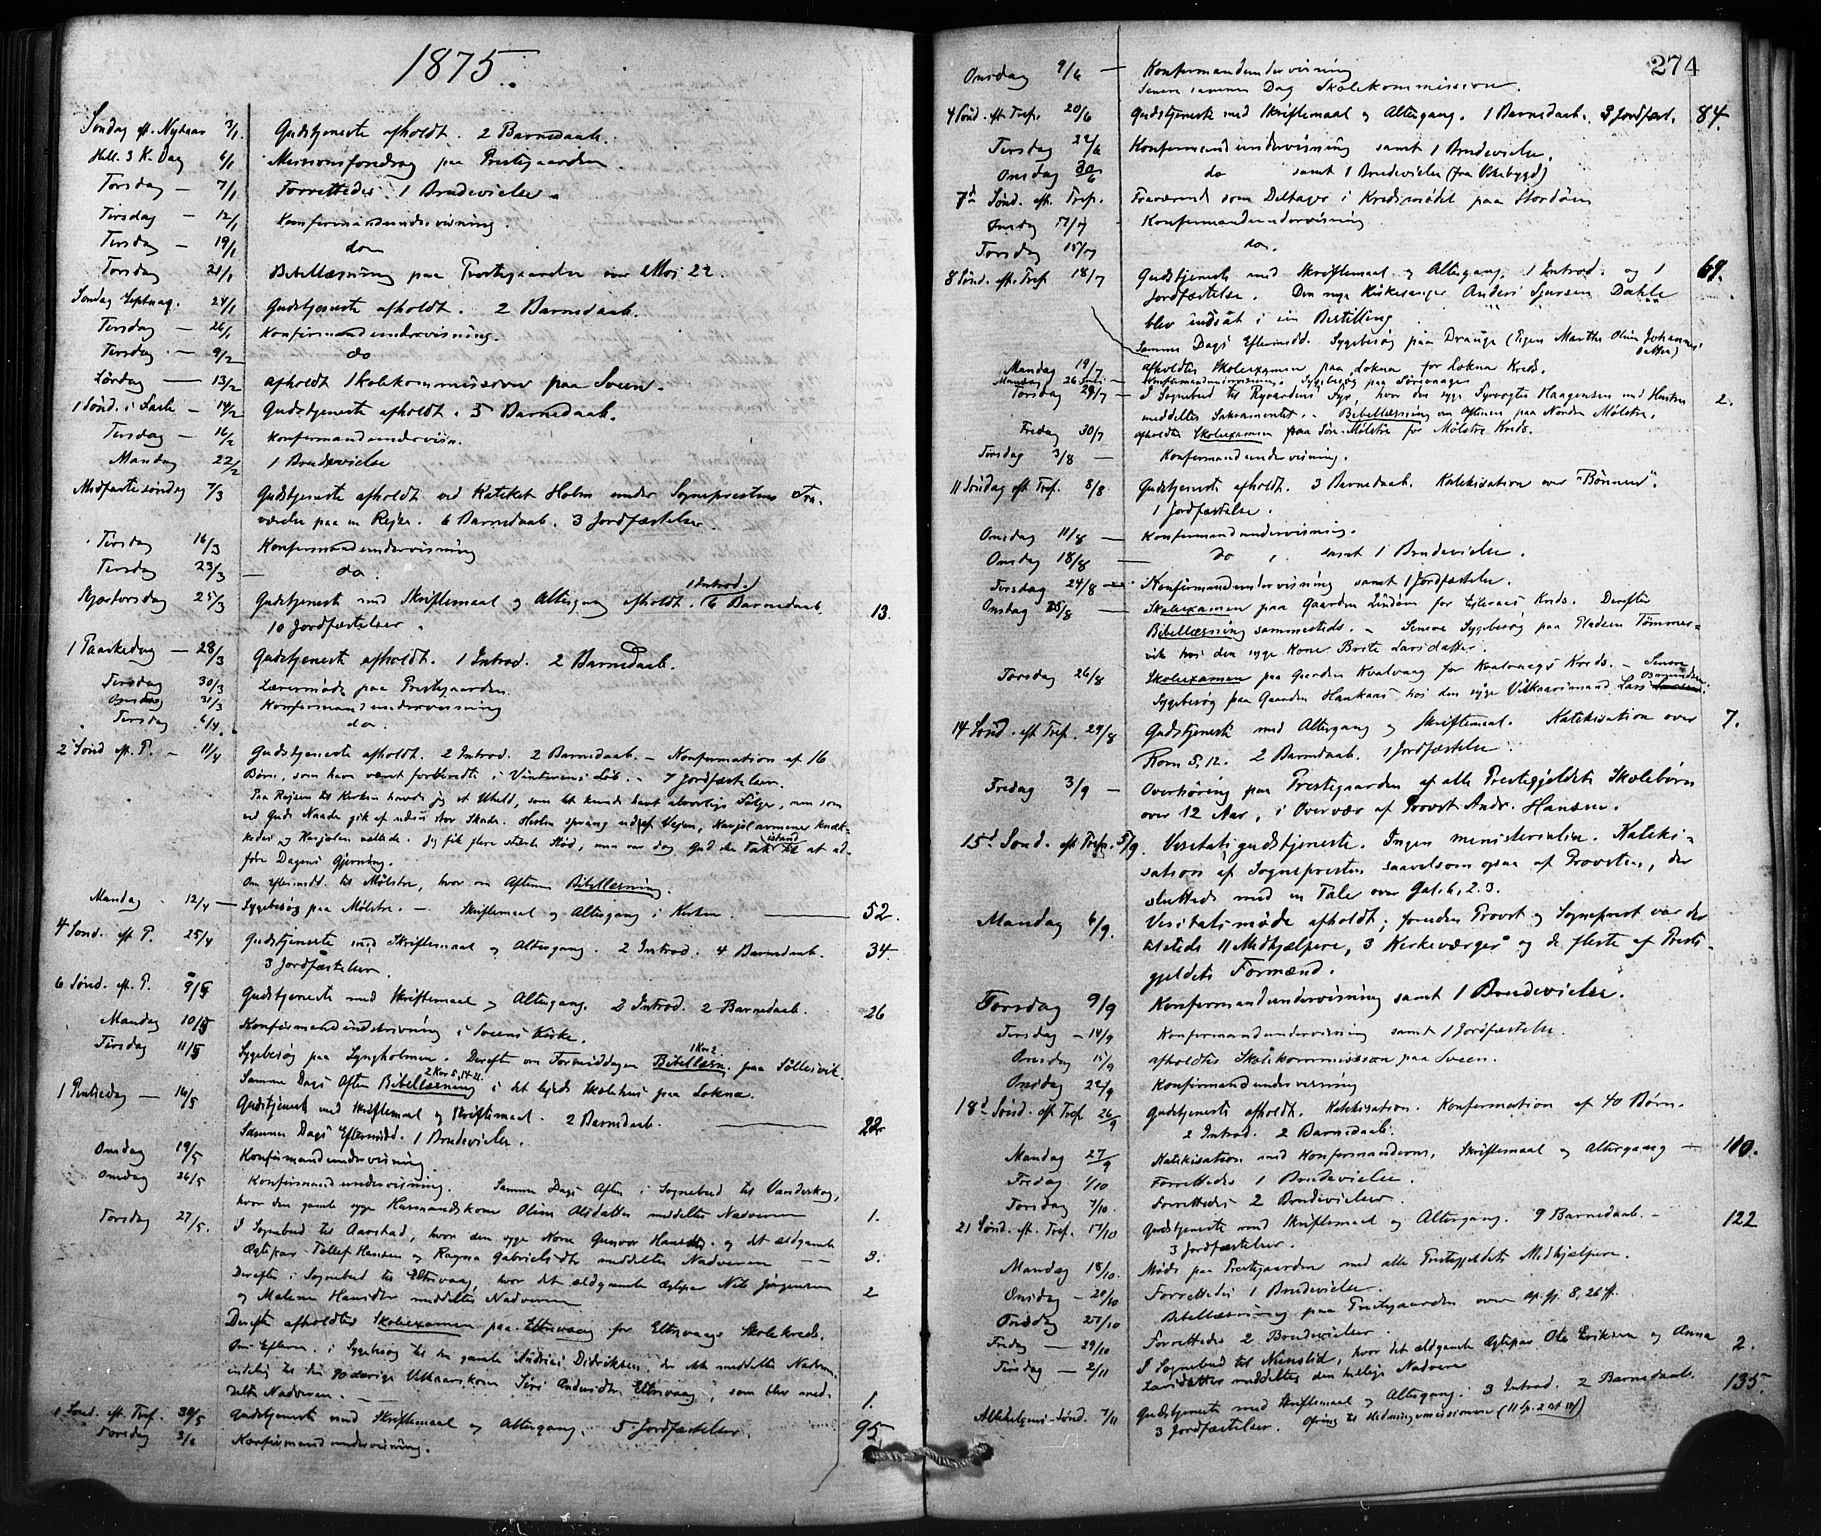 1875.
Søndag eft. Nytaar 3/1. Gudstjeneste afholdt. 2 Barnedaab.
Hell. 3 K. Dag 6/1 Missionsforedrag paa Prestegaarden
Torsdag — 7/1 Forrettedes 1 Brudevielse.
Tirsdag — 12/1 Konfirmandundervisning.
Tirsdag — 19/1 do
Torsdag 21/1 Bibellæsning paa Prestegaarden over 1 Mos. 22.
Søndag Septuag. 24/1 Gudstjeneste afholdt. 2 Barnedaab.
Tirsdag — 26/1 Konfirmandundervisning.
Tirsdag — 9/2 do
Lørdag — 13/2 afholdt Skolekommission paa Sveen.
1 Sønd. i Faste — 14/2 Gudstjeneste afholdt. 5 Barnedaab.
Tirsdag — 16/2 Konfirmandundervisn.
Mandag 22/2 1 Brudevielse
Midfastesøndag 7/3 Gudstjeneste afholdt ved Kateket Holm under Sogneprestens Fra-
værelse paa en Rejse. 6 Barnedaab. 3 Jordfæstelser
Tirsdag 16/3 Konfirmandundervisning
Tirsdag 23/3 — do.
Skjærtorsdag 25/3 Gudstjeneste med Skriftemaal og Altergang afholdt. 1 Introd. 6 Barnedaab. 13.
10 Jordfæstelser.
1 Paaskedag — 28/3 Gudstjeneste afholdt. 1 Introd. 2 Barnedaab.
Tirsdag 30/3 Lærermøde paa Prestegaarden.
Onsdag 31/3 Konfirmandundervisning
Tirsdag 6/4. do.
2 Sønd. eft. P. — 11/4 Gudstjeneste afholdt. 2 Introd. 2 Barnedaab. — Konfirmation af 16
Børn, som have været forberedte i Vinterens Løb. — 7 Jordfæstelser.
Paa Rejsen til Kirken havde jeg et Uheld, som let kunde havt alvorlige Følger, men som
ved Guds Naade gik af uden stor Skade. Hesten sprang ud af Vejen, Karjolarmene knæk-
kedes og Karjolen væltede. Jeg fik flere stærke Stød, men var dog Gud ske Tak istand til at ud-
føre Dagens Gjerning.
Om Eftermidd. til Mølstre, hvor om Aftenen Bibellæsning.
Mandag 12/4 — Sygebesøg paa Mølstre. — Skriftemaal og Altergang i Kirken. — 52.
4 Sønd. eft P. 25/4 Gudstjeneste med Skriftemaal og Altergang. 2 Introd. 4 Barnedaab. 34.
3 Jordfæstelser.
6 Sønd. eft. P. 9/5 Gudstjeneste med Skriftemaal og Altergang. 2 Introd. 2 Barnedaab. 26
Mandag 10/5 Konfirmandindskrivning i Sveens Kirke.
Tirsdag 11/5 Sygebesøg paa Lyngholmen. Derefter om Formiddagen Bibellæsn. 1 Kor 2. paa Tøllesvik.
Samme Dags Aften Bibellæsning 2 Kor 5, 14-21. i det lejede Skolehus paa Lokna.
1 Pintsedag — 16/5 Gudstjeneste med Skriftemaal og Skriftemaal. 2 Barnedaab. — 22.
Samme Dags Eftermidd. 1 Brudevielse.
Onsdag 19/5 Konfirmandundervisning.
Onsdag 26/5 Konfirmandundervisning. Samme Dags Aften i Sognebud til Vanderskog,
hvor den gamle syge Husmandskone Oline Olsdatter meddeltes Nadveren 1.
Torsdag 27/5. I Sognebud til Aarstad, hvor den syge Kone Gunvor Hansdtr. og det ældgamle
Ægtepar Tollef Hansen og Ragna Gabrielsdtr meddeltes Nadveren — 3.
Derefter i Sognebud til Eltrevaag, hvor det ældgamle Ægtepar Nils Jørgensen
og Malene Hansdtr meddeltes Nadveren 2
Derefter afholdtes Skoleexamen paa Eltrevaag for Eltrevaags Skolekreds.
Om Efterm. i Sygebesøg til den gamle Andreas Didriksen, der ikke meddeltes Nadver.
endelig til den 90 aarige Vilkaarskone Siri Andersdtr Eltrevaag, som blev med-
delt Nadveren. — 1.
1 Sønd. eft. Tref. 30/5 Gudstjeneste med Skriftemaal og Altergang. 5 Jordfæstelser. 95.
Torsdag 3/6 Konfirmandundervisning.
274
Onsdag 9/6 — Konfirmandundervisning
Senere samme Dag Skolekommission.
4 Sønd. eft Tref. 20/6 Gudstjeneste med Skriftemaal og Altergang. 1 Barnedaab. 3 Jordfæst. 84.
Tirsdag 22/6 Konfirmandundervisning samt 1 Brudevielse.
Onsdag 30/6 do samt 1 Brudevielse (fra Valebygd)
7d Sønd. eft. Tref. Fraværende som Deltager i Kredsmødet paa Stordøen
Konfirmandundervisning
Torsdag 15/7 do.
8 Sønd. eft. Tref 18/7 Gudstjeneste med Skriftemaal og Altergang. 1 Introd. og 1 69.
Jordfæstelse. Den nye Kirkesanger Anders Sjursen Dahle
blev indsat i sin Bestilling
Samme Dags Eftermidd. Sygebesøg paa Drange (Pigen Marthe Oline Johannes-
datter)
Mandag 19/7 afholdtes Skoleexamen paa Lokna for Lokna Kreds.
Mandag 26 Juli — Konfirmandundervisning. Sygebesøg paa
Torsdag 29/7 I Sognebud til Ryvardens Fyr, hvor den syge Fyrvogter Haagensen med Hustru 2.
meddeltes Sakramentet. — Bibellæsning om Aftenen paa Nordre Mølstre.
Fredag 30/7 afholdtes Skoleexamen paa Søre Mølstre for Mølstre Kreds.
Tirsdag 3/8 — Konfirmandundervisning.
11 Søndag eft Tref. 8/8. Gudstjeneste afholdt. 3 Barnedaab. Katekisation over "Bønnen".
1 Jordfæstelse.
Onsdag 11/8 — Konfirmandundervisning.
Onsdag 18/8 — do, samt 1 Brudevielse.
Tirsdag 24/8 — Konfirmandundervisning samt 1 Jordfæstelse.
Onsdag 25/8 — Skoleexamen paa Gaarden Lindøen for Ejternæs Kreds. Derefter
Bibellæsning sammesteds. — Senere Sygebesøg paa Pladsen Tømmer-
vik hos den syge Kone Berte Larsdatter.
Torsdag 26/8 Skoleexamen paa Gaarden Kvalvaag for Kvalvaags Kreds. — Senere
Sygebesøg paa Gaarden Haukaas hos den syge Vilkaarsmand Lars
14 Sønd. eft Tref. 29/8 Gudstjeneste med Altergang og Skriftemaal. Katekisation over 7.
Rom 5, 12. 2 Barnedaab. 1 Jordfæstelse.
Fredag 3/9 — Overhøring paa Prestegaarden af alle Prestegjeldets Skolebørn
over 12 Aar, i Overvær af Provst Andr. Hansen.
15d Sønd. eft Tref. 5/9. Visitatsgudstjeneste. Ingen ministerialia. Kateki-
sation af Sognepresten saavelsom ogsaa af Provsten, der
sluttede med en Tale over Gal. 6, 2.3.
Mandag 6/9. Visitatsmøde afholdt; foruden Provst og Sogneprest var der
tilstede 11 Medhjælpere, 3 Kirkeværger og de fleste af Preste-
gjeldets Formænd.
Torsdag 9/9 Konfirmandundervisning samt 1 Brudevielse.
Tirsdag — 14/9 Konfirmandundervisning samt 1 Jordfæstelse.
Onsdag 15/9 afholdtes Skolekommission paa Sveen.
Onsdag 22/9 Konfirmandundervisning
18d Sønd. eft Tref 26/9 Gudstjeneste afholdt. Katekisation. Konfirmation af 40 Børn.
2 Introd. 2 Barnedaab.
Mandag 27/9 Katekisation med Konfirmanderne, Skriftemaal og Altergang — 110.
Fredag 1/10 Forrettedes 1 Brudevielse.
Torsdag 7/10. Forrettedes 2 Brudevielser.
21 Sønd. eft. Tref. 17/10 Gudstjeneste med Skriftemaal og Altergang. 9 Barnedaab. — 122
3 Jordfæstelser.
Mandag 18/10. Møde paa Prestegaarden med alle Prestegjeldets Medhjælpere.
Onsdag — 20/10 Forrettedes 1 Brudevielse.
Bibellæsning paa Prestegaarden over Ap. gj. 8, 26 ff.
Fredag — 29/10 Forrettedes 2 Brudevielser.
Tirsdag — 2/11 I Sognebud til hvor det ældgamle Ægtepar Ole Eriksen og Anna 2.
Larsdatter meddeltes den hellige Nadvere
Allehelgens-Sønd. 7/11 Gudstjeneste med Skriftemaal og Altergang. 3 Introd. 2 Barnedaab. 135.
3 Jordfæstelser. Ofring til Hedningemissionen